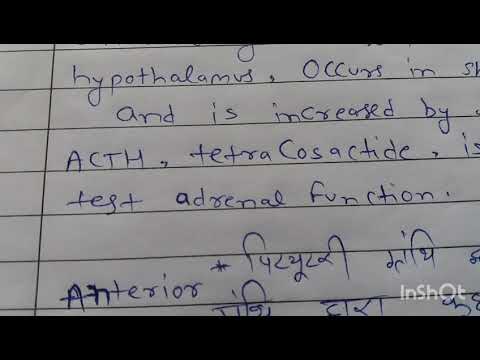 hypothalamus, occurs in
and is increased by
ACTH, tetracosactide, is
test adrenal function.
* पिट्यूटरी ग्रंथि
Anterior
ग्रंथि द्वारा
InShOt